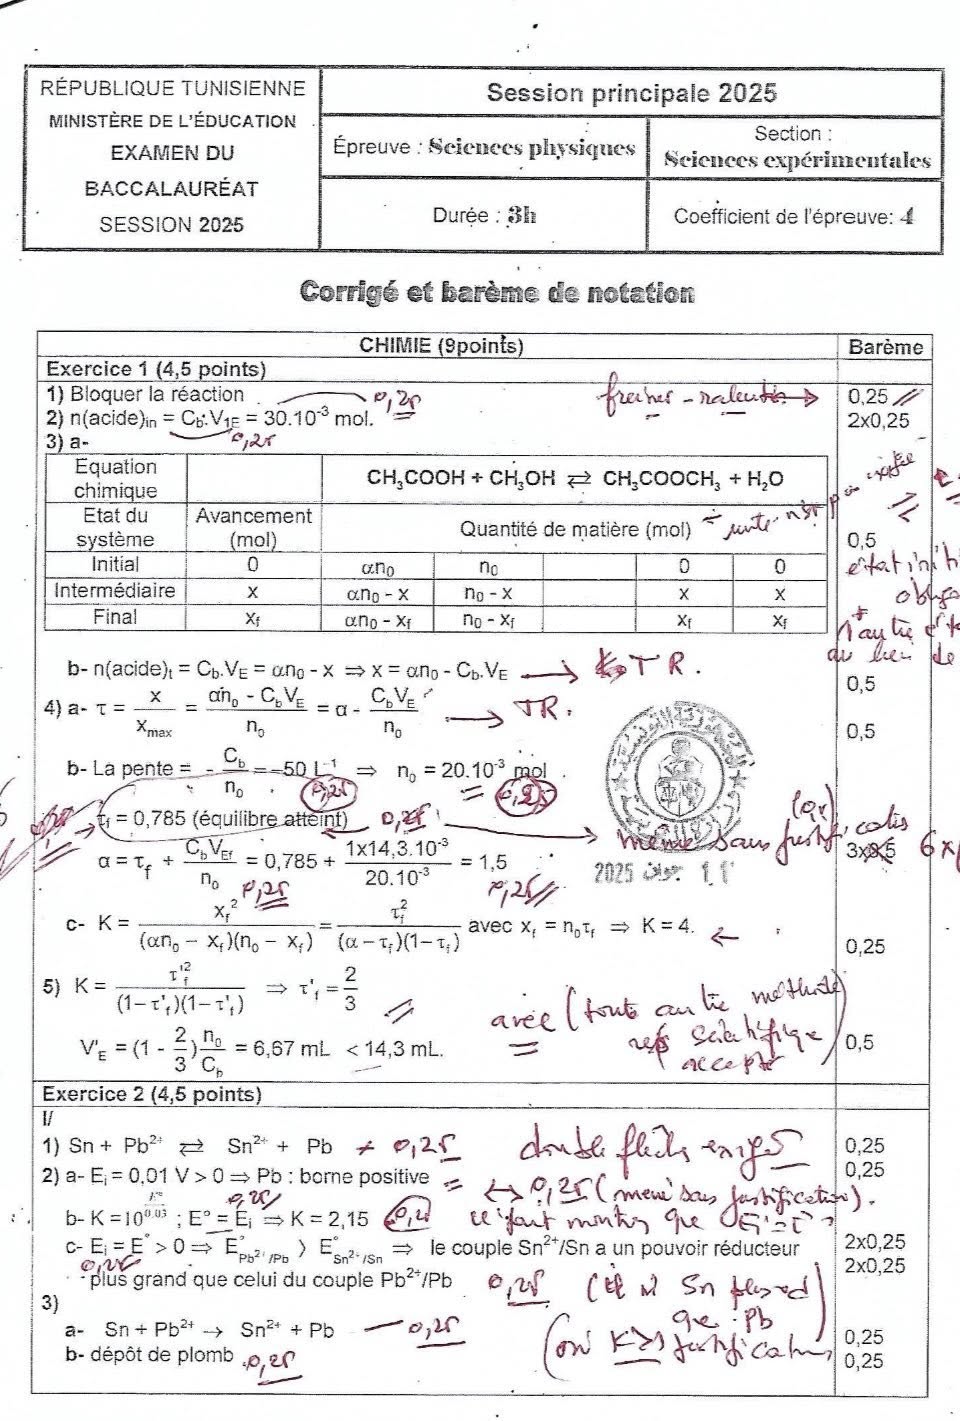 RÉPUBLIQUE TUNISIENNE
MINISTÈRE DE L'ÉDUCATION
EXAMEN DU
BACCALAURÉAT
SESSION 2025
Session principale 2025
Épreuve : Sciences physiques
Section :
Sciences expérimentales
Durée : 3h
Coefficient de l'épreuve: 4
Corrigé et barème de notation
CHIMIE (9points) Barème
Exercice 1 (4,5 points)
1) Bloquer la réaction 0,25 freiner - ralentir 0,25
2) n(acide)in = Cb.V1E = 30.10⁻³ mol. 2x0,25
0,25
3) a-
Equation chimique CH₃COOH + CH₃OH ⇄ CH₃COOCH₃ + H₂O
Etat du système Avancement (mol) Quantité de matière (mol) 0,5
Initial 0 αn₀ n₀ 0 0
Intermédiaire x αn₀ - x n₀ - x x x
Final xf αn₀ - xf n₀ - xf xf xf
b- n(acide)t = Cb.VE = αn₀ - x ⇒ x = αn₀ - Cb.VE → TR. 0,5
4) a- τ = x/xmax = (αn₀ - CbVE)/n₀ = α - CbVE/n₀ → TR. 0,5
b- La pente = - Cb/n₀ = -50 L⁻¹ ⇒ n₀ = 20.10⁻³ mol
0,25 0,25
τf = 0,785 (équilibre atteint) 0,25 même sans justif
α = τf + CbVEf/n₀ = 0,785 + 1x14,3.10⁻³/20.10⁻³ = 1,5 3x0,5 6x
11 جوان 2025
0,25 0,25
c- K = xf²/((αn₀ - xf)(n₀ - xf)) = τf²/((α - τf)(1 - τf)) avec xf = n₀τf ⇒ K = 4. 0,25
5) K = τ'f²/((1 - τ'f)(1 - τ'f)) ⇒ τ'f = 2/3
V'E = (1 - 2/3) n₀/Cb = 6,67 mL < 14,3 mL. 0,5
(toute autre méthode
scientifique
accepté
Exercice 2 (4,5 points)
I/
1) Sn + Pb²⁺ ⇄ Sn²⁺ + Pb 0,25 double flèche exigé 0,25
2) a- Ei = 0,01 V > 0 ⇒ Pb : borne positive 0,25 (même sans justification). 0,25
b- K = 10^(E°/0,03) ; E° = Ei ⇒ K = 2,15
0,25
c- Ei = E° > 0 ⇒ E°Pb²⁺/Pb 〉 E°Sn²⁺/Sn ⇒ le couple Sn²⁺/Sn a un pouvoir réducteur 2x0,25
0,25
plus grand que celui du couple Pb²⁺/Pb 0,25 2x0,25
3)
a- Sn + Pb²⁺ → Sn²⁺ + Pb 0,25 0,25
b- dépôt de plomb 0,25 0,25